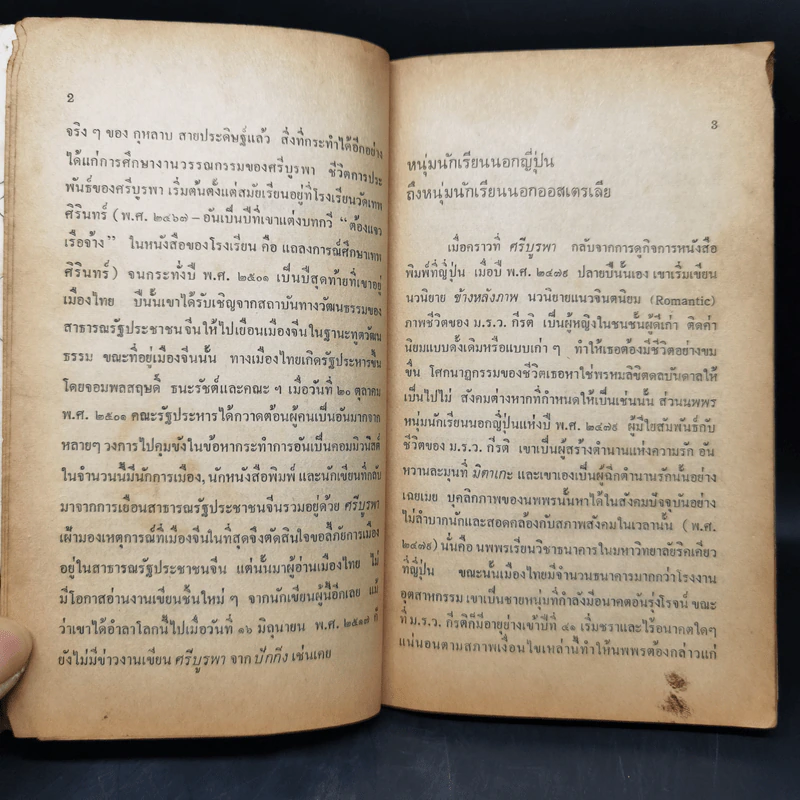 2
จริง ๆ ของ กุหลาบ สายประดิษฐ์แล้ว สิ่งที่กระทำได้อีกอย่าง
ได้แก่การศึกษางานวรรณกรรมของศรีบูรพา ชีวิตการประ
พันธ์ของศรีบูรพา เริ่มต้นตั้งแต่สมัยเรียนอยู่ที่โรงเรียนวัดเทพ
ศิรินทร์ (พ.ศ. ๒๔๖๗ – อันเป็นปีที่เขาแต่งบทกวี “ต้องแจว
เรือจ้าง” ในหนังสือของโรงเรียน คือ แถลงการณ์ศึกษาเทพ
ศิรินทร์) จนกระทั่งปี พ.ศ. ๒๕๐๑ เป็นปีสุดท้ายที่เขาอยู่
เมืองไทย ปีนั้นเขาได้รับเชิญจากสถาบันทางวัฒนธรรมของ
สาธารณรัฐประชาชนจีนให้ไปเยือนเมืองจีนในฐานะทูตวัฒน
ธรรม ขณะที่อยู่เมืองจีนนั้น ทางเมืองไทยเกิดรัฐประหารขึ้น
โดยจอมพลสฤษดิ์ ธนะรัชต์และคณะ ฯ เมื่อวันที่ ๒๐ ตุลาคม
พ.ศ. ๒๕๐๑ คณะรัฐประหารได้กวาดต้อนผู้คนเป็นอันมากจาก
หลายๆ วงการไปคุมขังในข้อหากระทำการอันเป็นคอมมิวนิสต์
ในจำนวนนี้มีนักการเมือง, นักหนังสือพิมพ์ และนักเขียนที่กลับ
มาจากการเยือนสาธารณรัฐประชาชนจีนรวมอยู่ด้วย ศรีบูรพา
เฝ้ามองเหตุการณ์ที่เมืองจีนในที่สุดจึงตัดสินใจขอลี้ภัยการเมือง
อยู่ในสาธารณรัฐประชาชนจีน แต่นั้นมาผู้อ่านเมืองไทย ไม่
มีโอกาสอ่านงานเขียนชิ้นใหม่ ๆ จากนักเขียนผู้นี้อีกเลย แม้
ว่าเขาได้อำลาโลกนี้ไปเมื่อวันที่ ๑๖ มิถุนายน พ.ศ. ๒๕๑๗ ก็
ยังไม่มีข่าวงานเขียน ศรีบูรพา จาก ปักกิ่ง เช่นเคย
3
หนุ่มนักเรียนนอกญี่ปุ่น
ถึงหนุ่มนักเรียนนอกออสเตรเลีย
เมื่อคราวที่ ศรีบูรพา กลับจากการดูกิจการหนังสือ
พิมพ์ที่ญี่ปุ่น เมื่อปี พ.ศ. ๒๔๗๙ ปลายปีนั้นเอง เขาเริ่มเขียน
นวนิยาย ข้างหลังภาพ นวนิยายแนวจินตนิยม (Romantic)
ภาพชีวิตของ ม.ร.ว. กีรติ เป็นผู้หญิงในชนชั้นผู้ดีเก่า ติดค่า
นิยมแบบดั้งเดิมหรือแบบเก่า ๆ ทำให้เธอต้องมีชีวิตอย่างขม
ขื่น โศกนาฏกรรมของชีวิตเธอหาใช่พรหมลิขิตดลบันดาลให้
เป็นไปไม่ สังคมต่างหากที่กำหนดให้เป็นเช่นนั้น ส่วนนพพร
หนุ่มนักเรียนนอกญี่ปุ่นแห่งปี พ.ศ. ๒๔๗๙ ผู้มีใยสัมพันธ์กับ
ชีวิตของ ม.ร.ว. กีรติ เขาเป็นผู้สร้างตำนานแห่งความรัก อัน
หวานละมุนที่ มิตาเกะ และเขาเองเป็นผู้ฉีกตำนานรักนั้นอย่าง
เฉยเมย บุคลิกภาพของนพพรนั้นหาได้ในสังคมปัจจุบันอย่าง
ไม่ลำบากนักและสอดคล้องกับสภาพสังคมในเวลานั้น (พ.ศ.
๒๔๗๙) นั่นคือ นพพรเรียนวิชาธนาคารในมหาวิทยาลัยริคเคียว
ที่ญี่ปุ่น ขณะนั้นเมืองไทยมีจำนวนธนาคารมากกว่าโรงงาน
อุตสาหกรรม เขาเป็นชายหนุ่มที่กำลังมีอนาคตอันรุ่งโรจน์ ขณะ
ที่ ม.ร.ว. กีรติก็มีอายุย่างเข้าปีที่ ๔๑ เริ่มชราและไร้อนาคตใดๆ
แน่นอนตามสภาพเงื่อนไขเหล่านี้ทำให้นพพรต้องกล่าวแก่